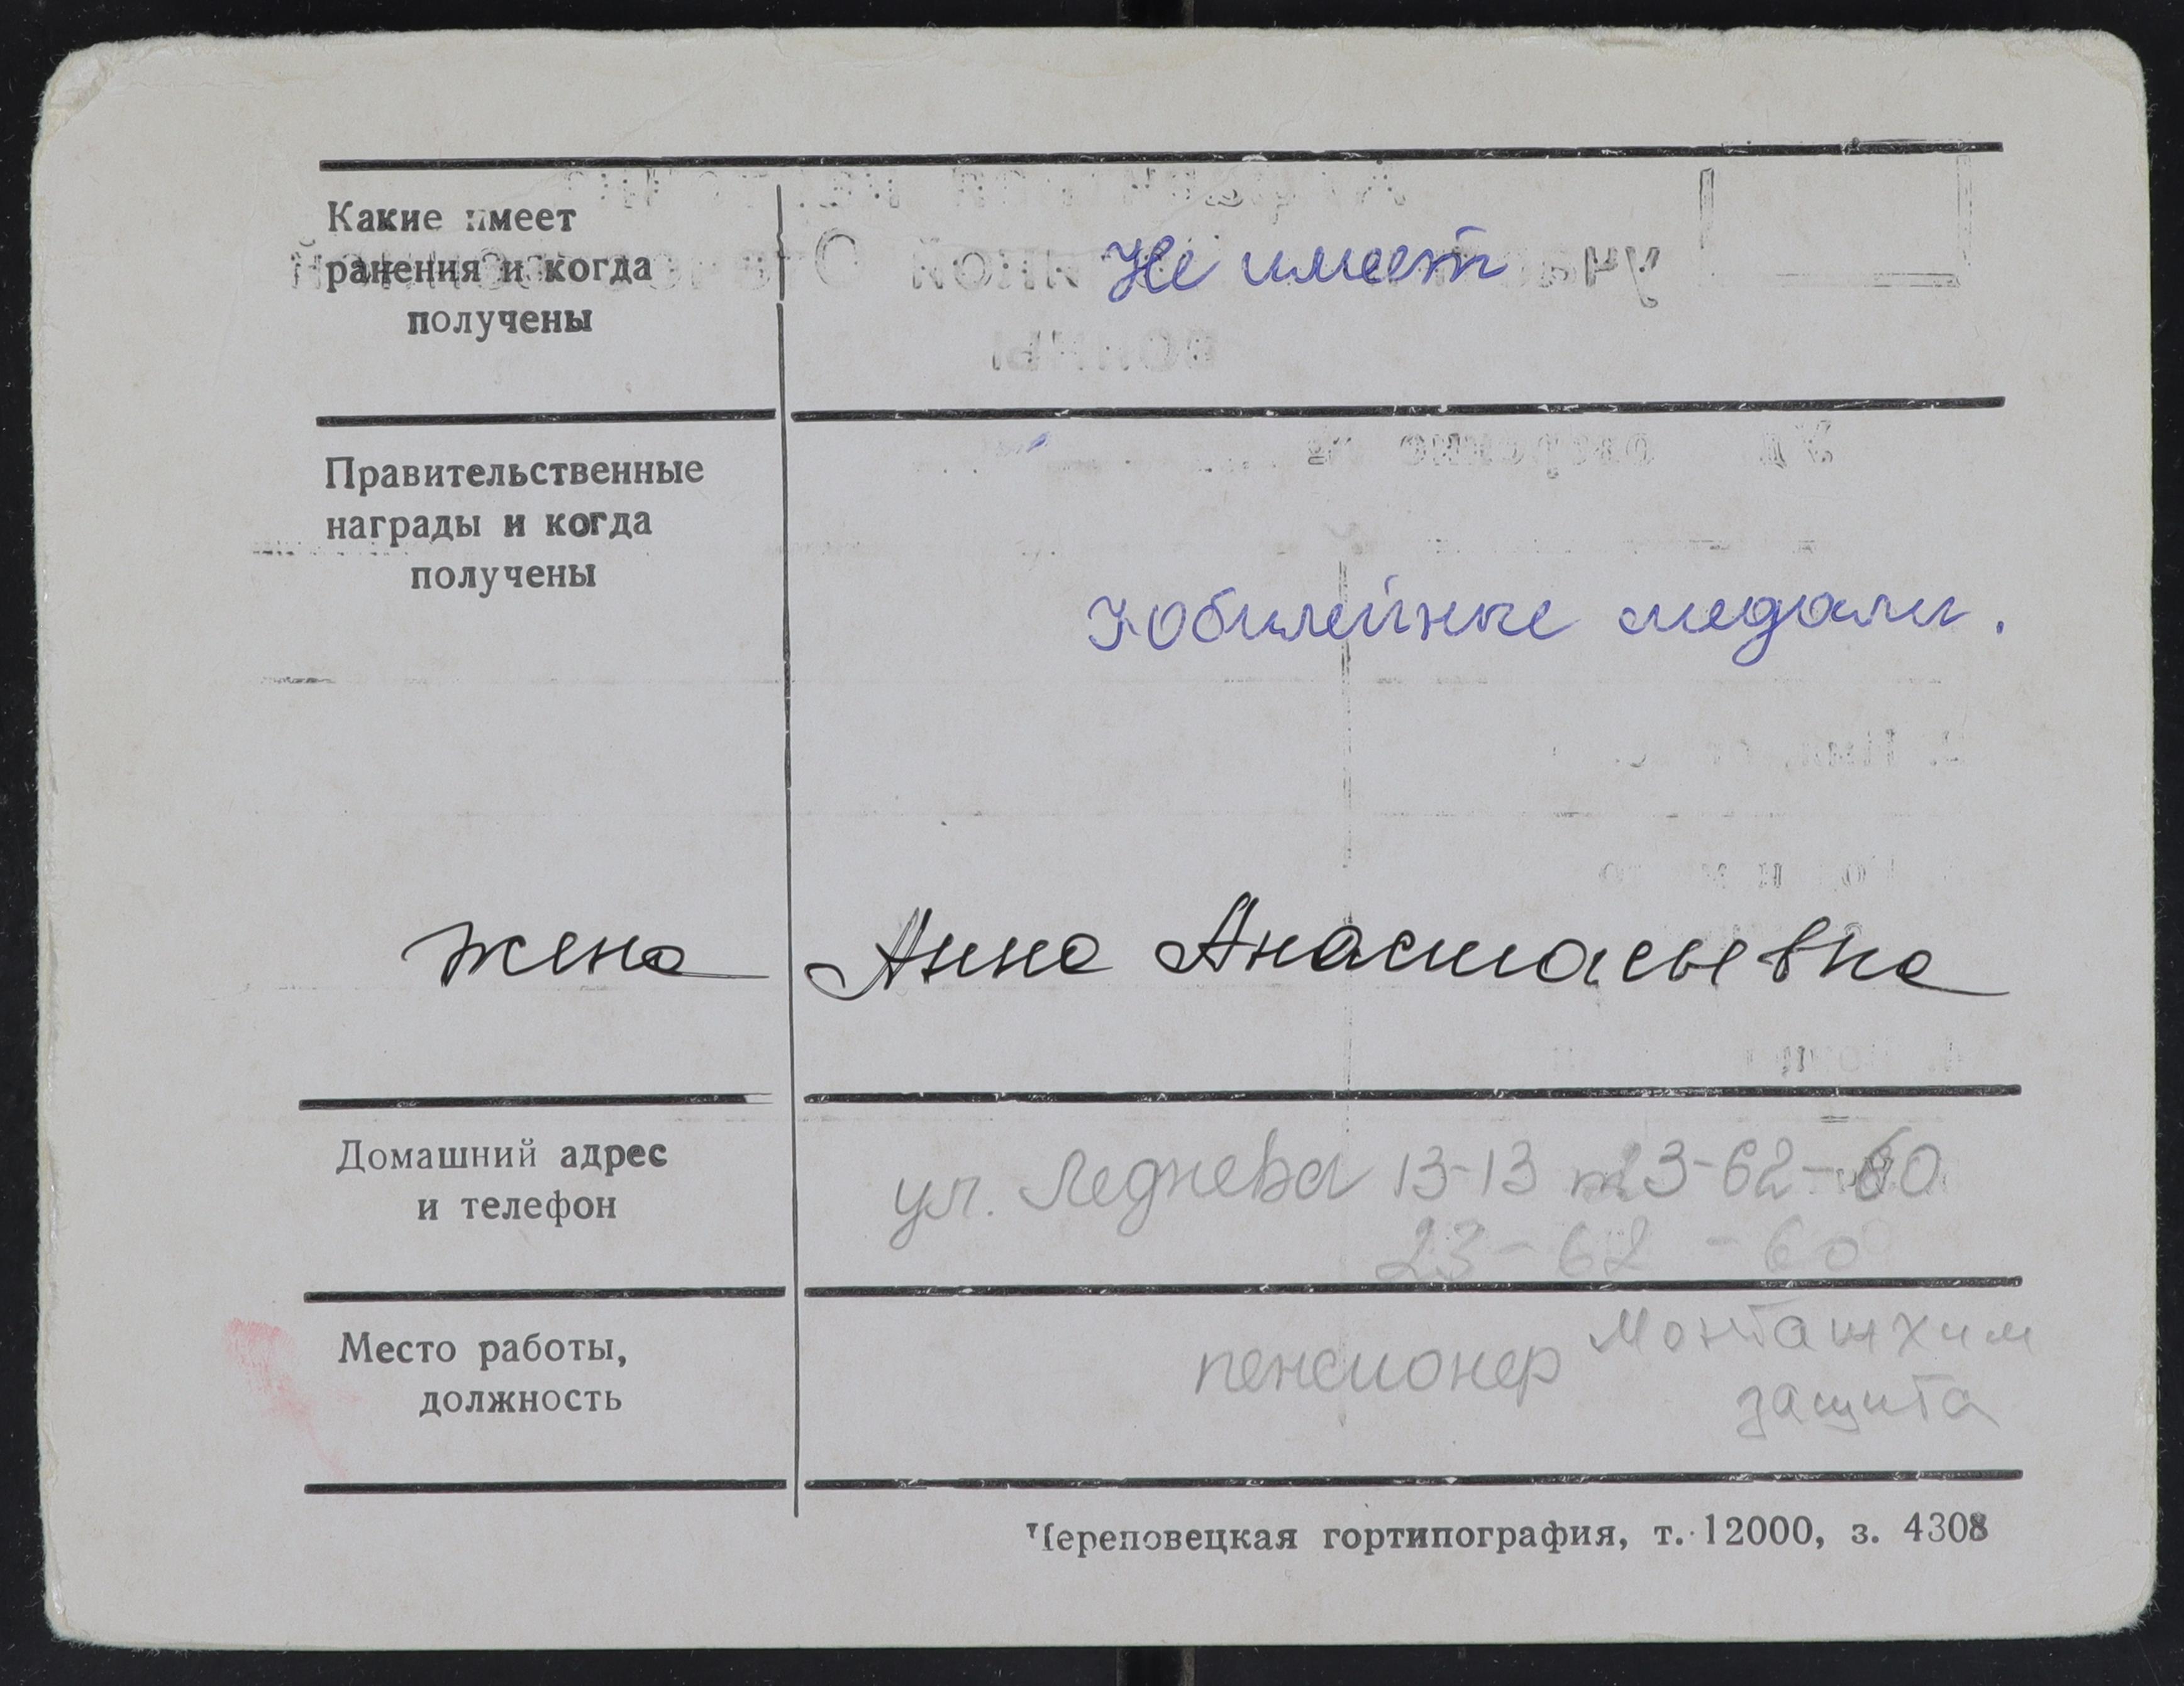 Какие имеет
ранения и когда
получены
Не имеет
Правительственные
награды и когда
получены
Юбилейные медали.
жена Анна Анастасьевна
Домашний адрес
и телефон
ул. Леднева 13-13 т 23-62-60
23-62-60
Место работы,
должность
пенсионер Монтажхим
защита
Череповецкая гортипография, т. 12000, з. 4308